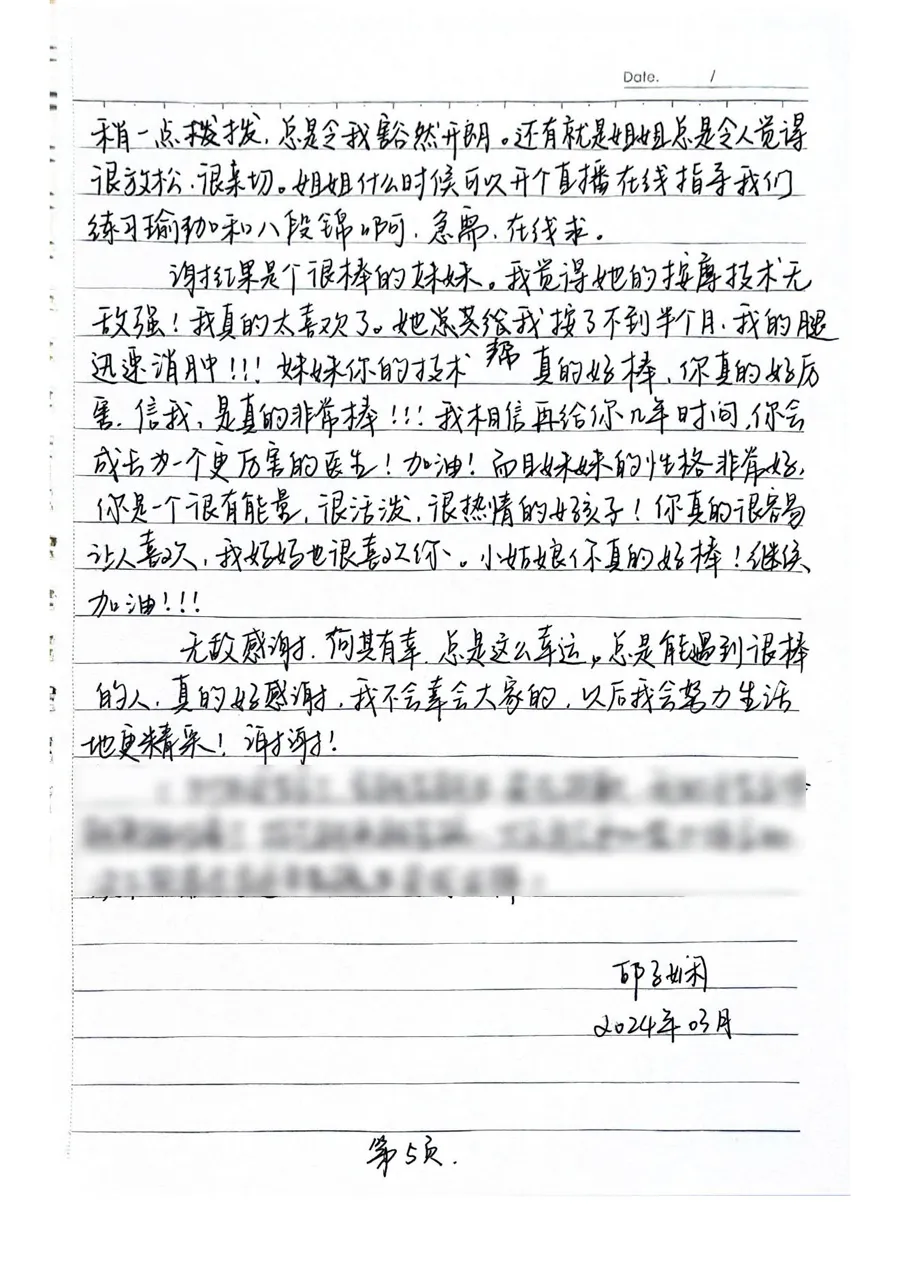 Date. /
稍一点拨拨，总是令我豁然开朗。还有就是姐姐总是令人觉得
很放松、很亲切。姐姐什么时候可以开个直播在线指导我们
练习瑜珈和八段锦啊，急需，在线求。
谢红果是个很棒的妹妹。我觉得她的按摩技术无
敌强！我真的太喜欢了。她总共给我按了不到半个月，我的腿
迅速消肿！！！妹妹你的技术帮真的好棒，你真的好厉
害，信我，是真的非常棒！！！我相信再给你几年时间，你会
成长为一个更厉害的医生！加油！而且妹妹的性格非常好，
你是一个很有能量，很活泼，很热情的好孩子！你真的很容易
让人喜欢，我妈妈也很喜欢你、。小姑娘你真的好棒！继续
加油！！！
无敌感谢，何其有幸，总是这么幸运。总是能遇到很棒
的人，真的好感谢，我不会辜会大家的，以后我会努力生活
地更精采！谢谢！
2024年03月
第5页.